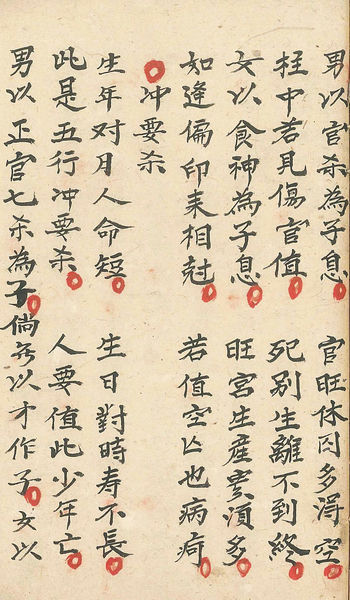 男以官杀為子息 官旺休囚多得空
柱中若見傷官值 死別生離不到終
女以食神為子息 旺宮生産實須多
如逢偏印来相尅 若值空亡也病疴
冲要杀
生年对月人命短 生日對時寿不長
此是五行冲要杀 人要值此少年亡
男以正官七杀為子倘無以才作子女以